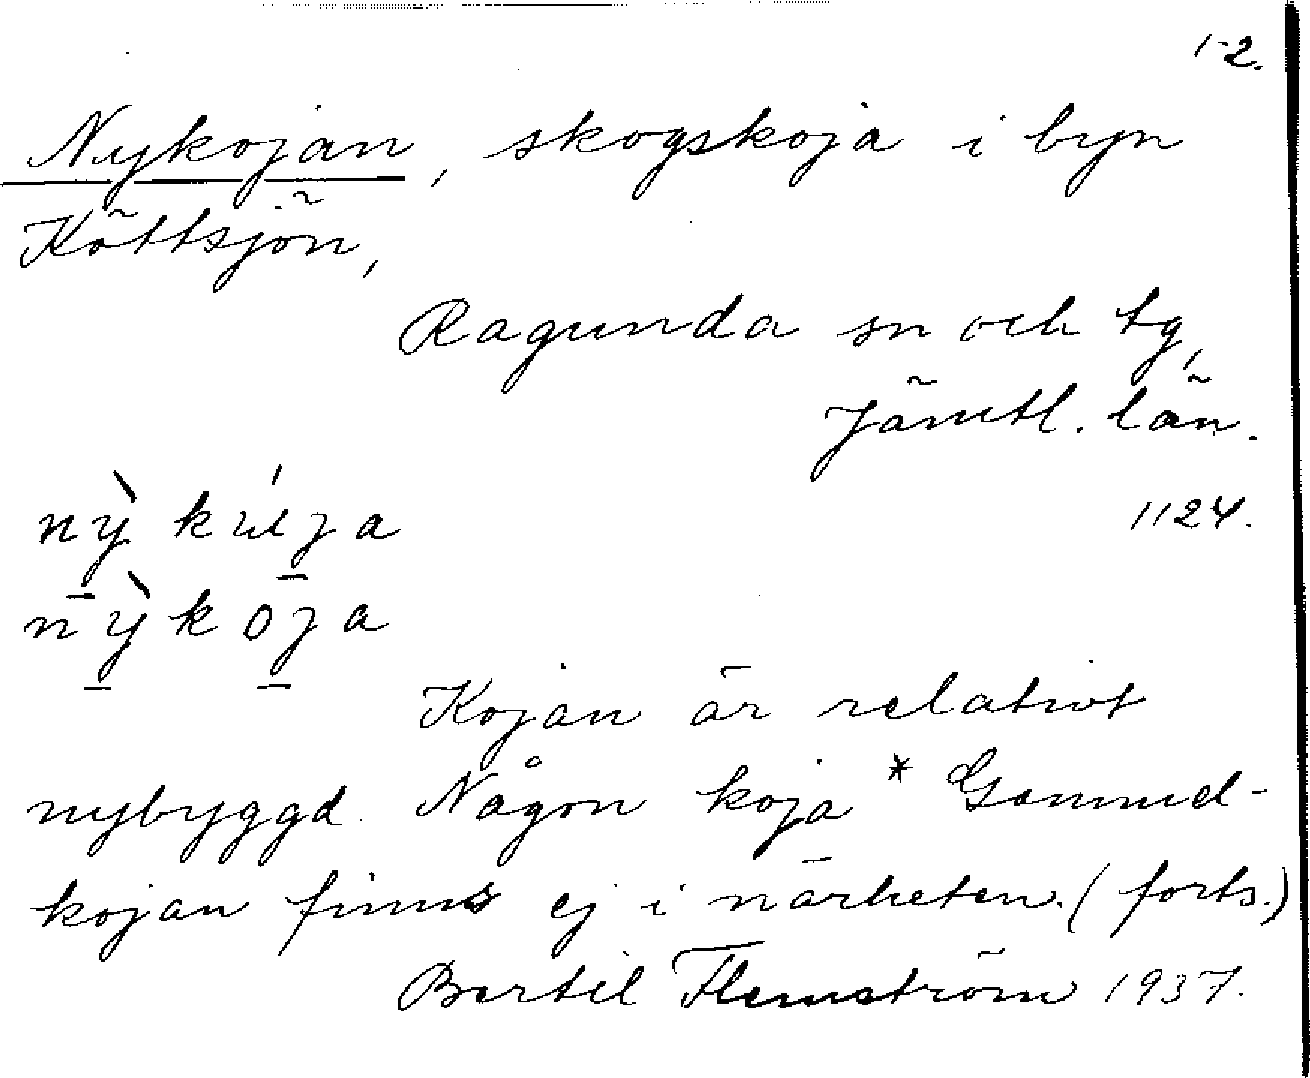 1-2.
Nykojan, skogskoja i byn
Köttsjön,
Ragunda sn och tg,
Jämtl. län.
1124.
nỳkúja
nỳkoja
Kojan är relativt
nybyggd. Någon koja * Gammel-
kojan finns ej i närheten. (forts.)
Bertil Flemström 1937.